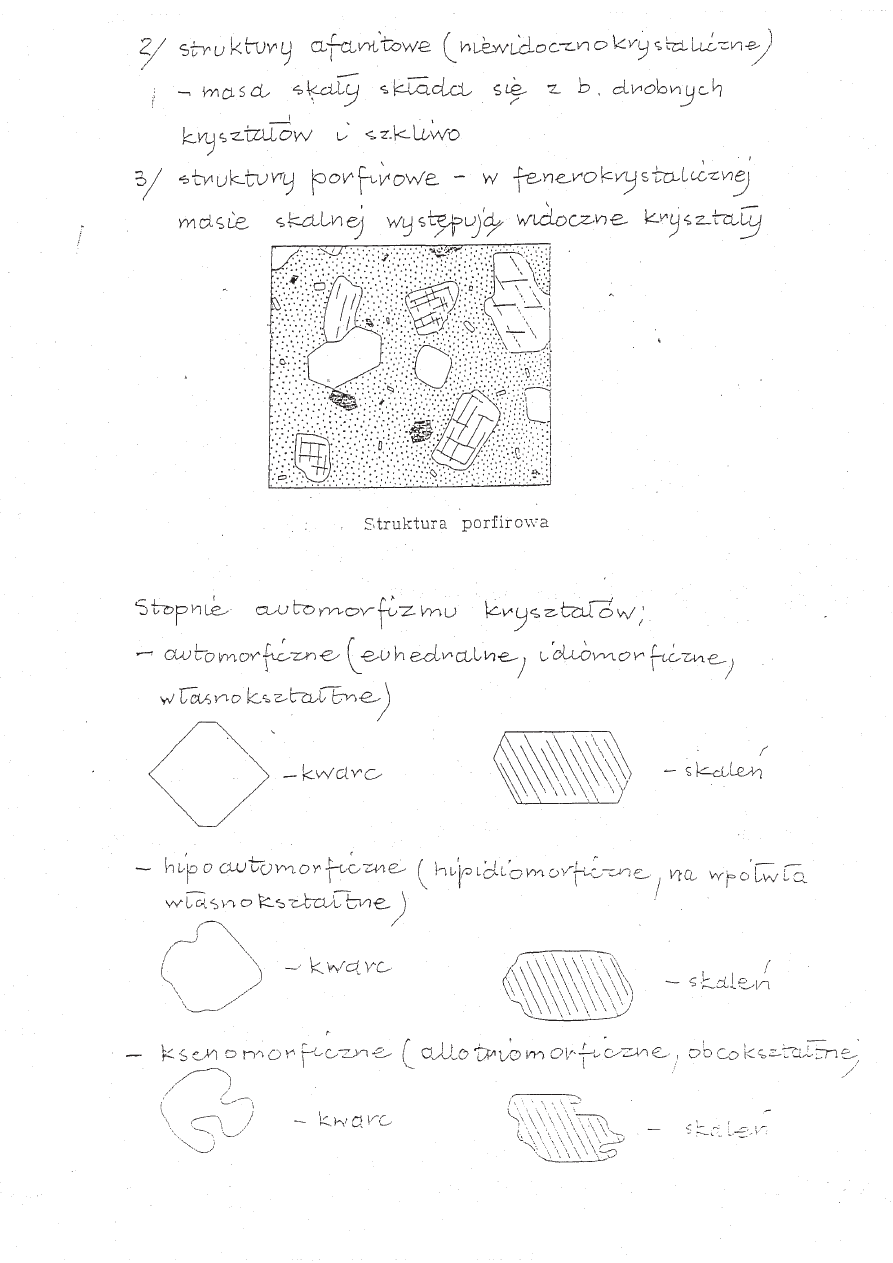 2/ struktury afanitowe (niewidocznokrystaliczne)
- masa skały składa się z b. drobnych
kryształów i szkliwo
3/ struktury porfirowe - w fenerokrystalicznej
masie skalnej występują widoczne kryształy
Struktura porfirowa
Stopnie automorfizmu kryształów;
- automorficzne (euhedralne, idiomorficzne,
własnokształtne)
- kwarc
- skaleń
- hipoautomorficzne (hipidiomorficzne, na wpółwła
własnokształtne)
- kwarc
- skaleń
- ksenomorficzne (allotriomorficzne, obcokształtne,
- kwarc
- skaleń